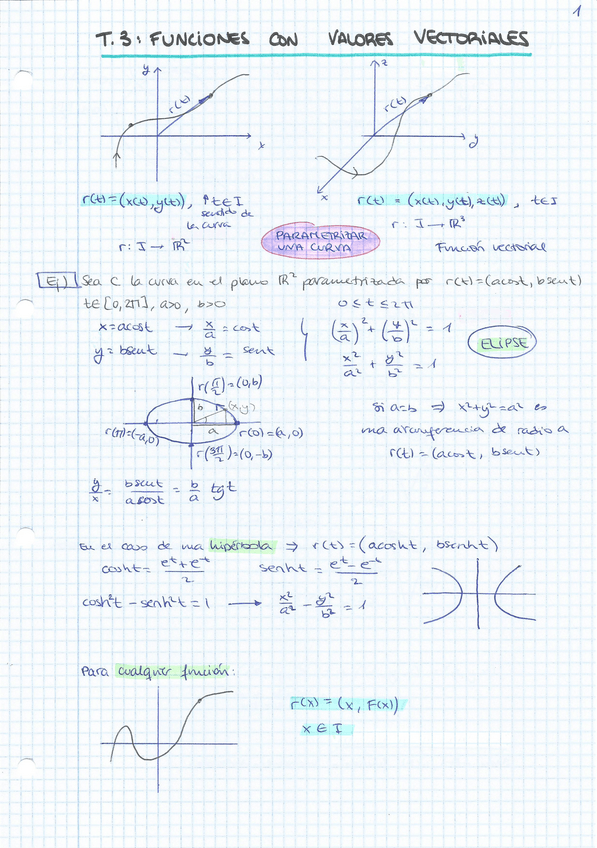 1
T.3: FUNCIONES CON VALORES VECTORIALES
y
r(t)
x
z
r(t)
y
x
r(t) = (x(t), y(t)), t∈I
sentido de
la curva
r(t) = (x(t), y(t), z(t)), t∈I
r: I → ℝ²
PARAMETRIZAR
UNA CURVA
r: I → ℝ³
Función vectorial
Ej) Sea C la curva en el plano ℝ² parametrizada por r(t)=(acost, bsent)
t∈[0,2π], a>0, b>0
0 ≤ t ≤ 2π
x=acost → x/a = cost
y=bsent → y/b = sent
(x/a)² + (y/b)² = 1
x²/a² + y²/b² = 1
ELIPSE
r(π/2)=(0,b)
b
(x,y)
a
r(π)=(-a,0)
r(0)=(a,0)
r(3π/2)=(0,-b)
Si a=b ⇒ x²+y²=a² es
una circunferencia de radio a
r(t) = (acost, bsent)
y/x = bsent/acost = b/a tgt
En el caso de una hipérbola ⇒ r(t) = (acosht, bsenht)
cosht = e^t+e^-t/2
senht = e^t-e^-t/2
cosh²t - senh²t = 1 → x²/a² - y²/b² = 1
Para cualquier función:
r(x) = (x, F(x))
x ∈ I